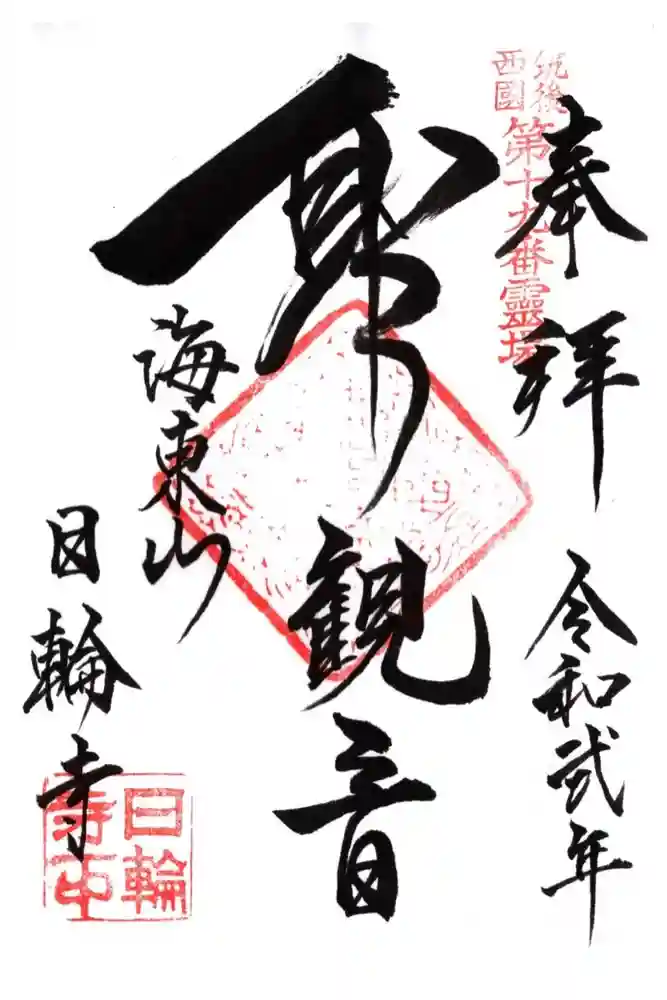 奉拝
筑後
西國
第十九番靈場
令和弐年
観音
海東山
日輪寺
日輪
寺印